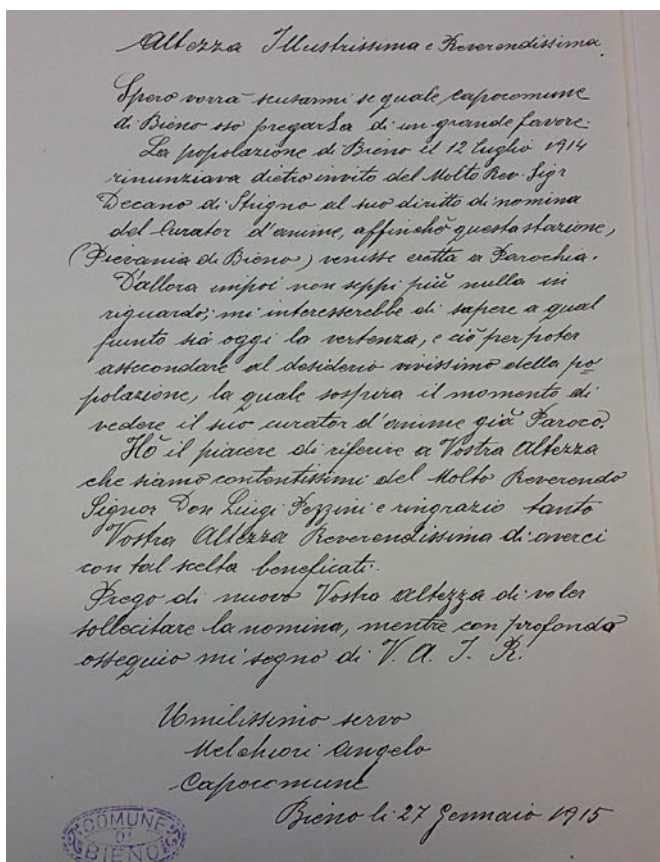 Altezza Illustrissima e Reverendissima.
Spero vorrà scusarmi se quale capocomune
di Bieno oso pregarLa di un grande favore.
La popolazione di Bieno il 12 luglio 1914
rinunziava dietro invito del Molto Rev. Sigr
Decano di Strigno al suo diritto di nomina
del Curator d'anime, affinchè questa stazione,
(Pievania di Bieno) venisse eretta a Parochia.
D'allora impoi non seppi più nulla in
riguardo; mi interesserebbe di sapere a qual
punto sia oggi la vertenza, e ciò per poter
assecondare al desiderio vivissimo della po=
polazione, la quale sospira il momento di
vedere il suo curator d'anime già Paroco.
Hò il piacere di riferire a Vostra Altezza
che siamo contentissimi del Molto Reverendo
Signor Don Luigi Pezzini e ringrazio tanto
Vostra Altezza Reverendissima di averci
con tal scelta beneficati.
Prego di nuovo Vostra altezza di voler
sollecitare la nomina, mentre con profonda
ossequio mi segno di V. A. I. R.
Umilissimo servo
Melchiori Angelo
Capocomune
Bieno li 27 Gennaio 1915
COMUNE
DI
BIENO